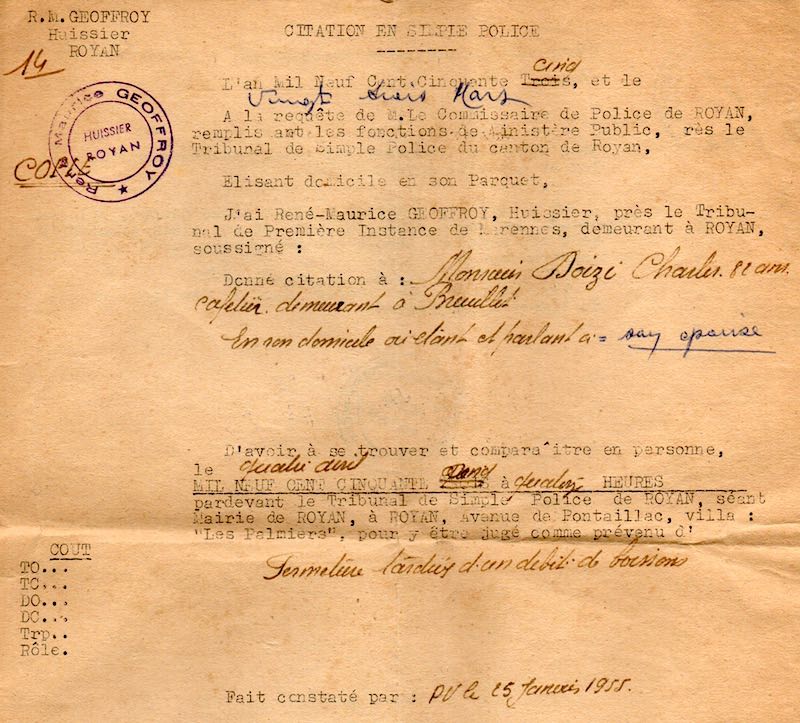 R.M. GEOFFROY
Huissier
ROYAN
14
CITATION EN SIMPLE POLICE
René Maurice GEOFFROY
HUISSIER
ROYAN
COPIE
cinq
L'an Mil Neuf Cent Cinquante Trois, et le
Vingt trois Mars
A la requête de M.Le Commissaire de Police de ROYAN,
remplis ant les fonctions de Ministère Public, rès le
Tribunal de Simple Police du canton de Royan,
Elisant domicile en son Parquet,
J'ai René-Maurice GEOFFROY, Huissier, près le Tribu-
nal de Première Instance de Marennes, demeurant à ROYAN,
soussigné :
Donné citation à : Monsieur Doizi Charles 82 ans
cafetier demeurant à Breuillet
En son domicile où étant et parlant à = son épouse
D'avoir à se trouver et comparaître en personne,
le quatre avril
MIL NEUF CENT CINQUANTE cinq à quatorze HEURES
pardevant le Tribunal de Simple Police de ROYAN, séant
Mairie de ROYAN, à ROYAN, Avenue de Pontaillac, villa :
"Les Palmiers", pour y être jugé comme prévenu d'
Fermeture tardive d'un débit de boissons
COUT
TO...
TC...
DO...
DC...
Trp..
Rôle.
Fait constaté par : PV le 25 Janvier 1955.